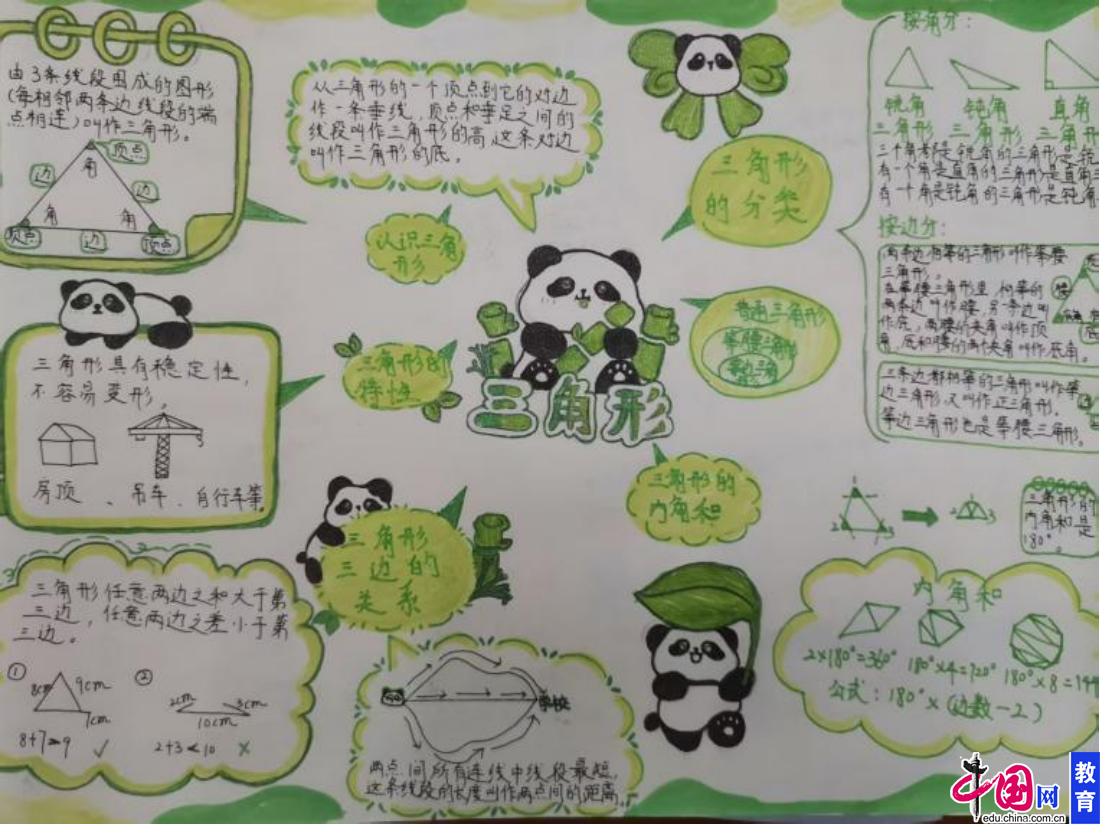 由3条线段围成的图形
(每相邻两条边线段的端
点相连)叫作三角形。
顶点
角
边
边
角
角
顶点
边
顶点
从三角形的一个顶点到它的对边
作一条垂线,顶点和垂足之间的
线段叫作三角形的高,这条对边
叫作三角形的底。
认识三角
形
三角形
的分类
按角分:
锐角
三角形
钝角
三角形
直角
三角形
三个角都是锐角的三角形是锐
有一个角是直角的三角形是直角三
有一个角是钝角的三角形是钝角
按边分:
两条边相等的三角形叫作等腰
三角形。
在等腰三角形里,相等的
两条边叫作腰,另一条边叫
作底,两腰的夹角叫作顶
角,底和腰的两个夹角叫作底角。
腰
底
三条边都相等的三角形叫作等
边三角形,又叫作正三角形。
等边三角形也是等腰三角形。
普通三角形
等腰三角形
等边三角
形
三角形具有稳定性,
不容易变形。
房顶、吊车、自行车等。
三角形的
特性
三角形
三角形的
内角和
1
2
3
1
2
3
三角形的
内角和是
180°。
三角形
三边的
关系
三角形任意两边之和大于第
三边,任意两边之差小于第
三边。
①
8cm
9cm
7cm
8+7>9 ✓
②
2cm
3cm
10cm
2+3<10 ×
学校
两点间所有连线中线段最短,
这条线段的长度叫作两点间的距离。
内角和
2×180°=360°
180°×4=720°
180°×8=144
公式:180°×(边数-2)
中国网
edu.china.com.cn
教育